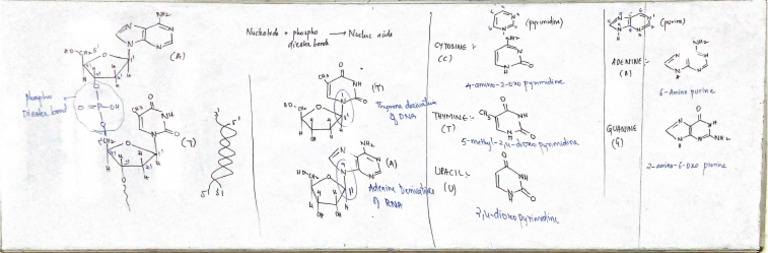 NH₂
(A)
HO-CH₂
Phospho
Diester bond
O=P-OH
NH
CH₂
(T)
3'
5'
5'
3'
Nucleotide + phospho → Nucleic acids
diester bond
(T)
Thymine derivative
of DNA
NH₂
(A)
HOCH₂
Adenine Derivatives
of RNA
OH
(pyrimidine)
CYTOSINE :-
(C)
NH₂
4-amino-2-oxo pyrimidine
THYMINE:-
(T)
CH₃
NH
5-methyl-2,4-dioxo pyrimidine
URACIL:-
(U)
NH
2,4-dioxopyrimidine
(purine)
ADENINE:-
(A)
NH₂
6-Amino purine
GUANINE
(G)
NH
NH₂
2-amino-6-oxo purine